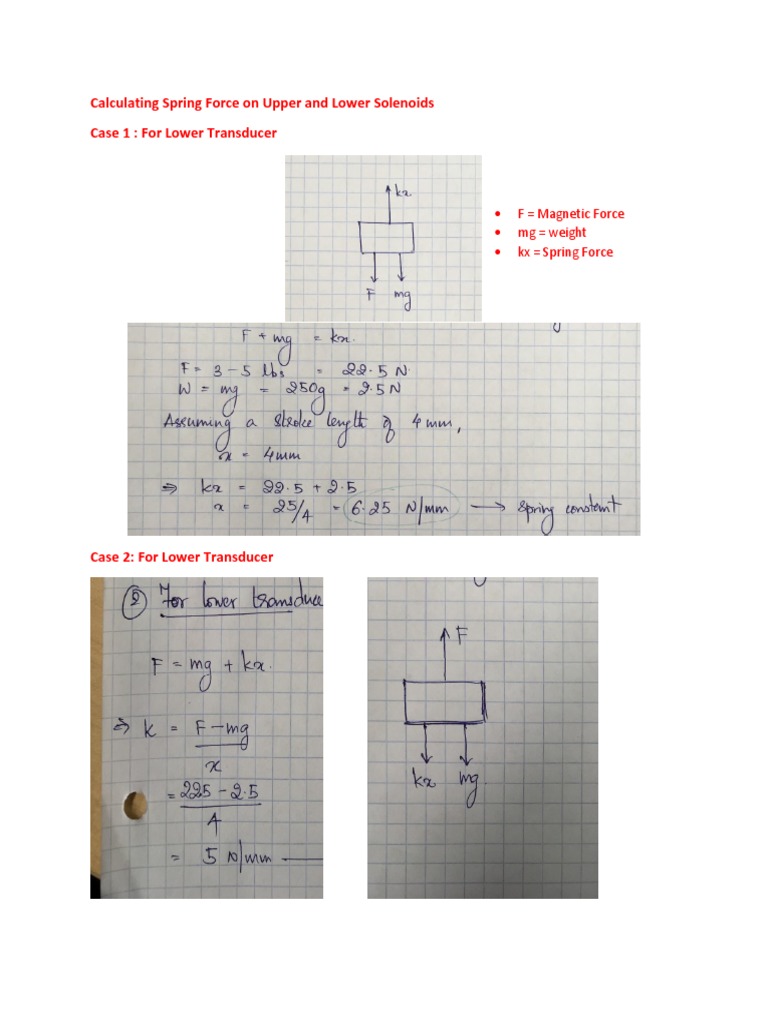 Calculating Spring Force on Upper and Lower Solenoids
Case 1 : For Lower Transducer
kx
F mg
• F = Magnetic Force
• mg = weight
• kx = Spring Force
F + mg = kx.
F = 3 – 5 lbs = 22.5 N.
W = mg = 250g = 2.5N
Assuming a stroke length of 4 mm,
x = 4mm
⇒ kx = 22.5 + 2.5
x = 25/4 = 6.25 N/mm → spring constant
Case 2: For Lower Transducer
② For lower transduce
F = mg + kx.
⇒ k = F – mg
x
= 225 – 2.5
4
= 5 N/mm
F
kx mg.